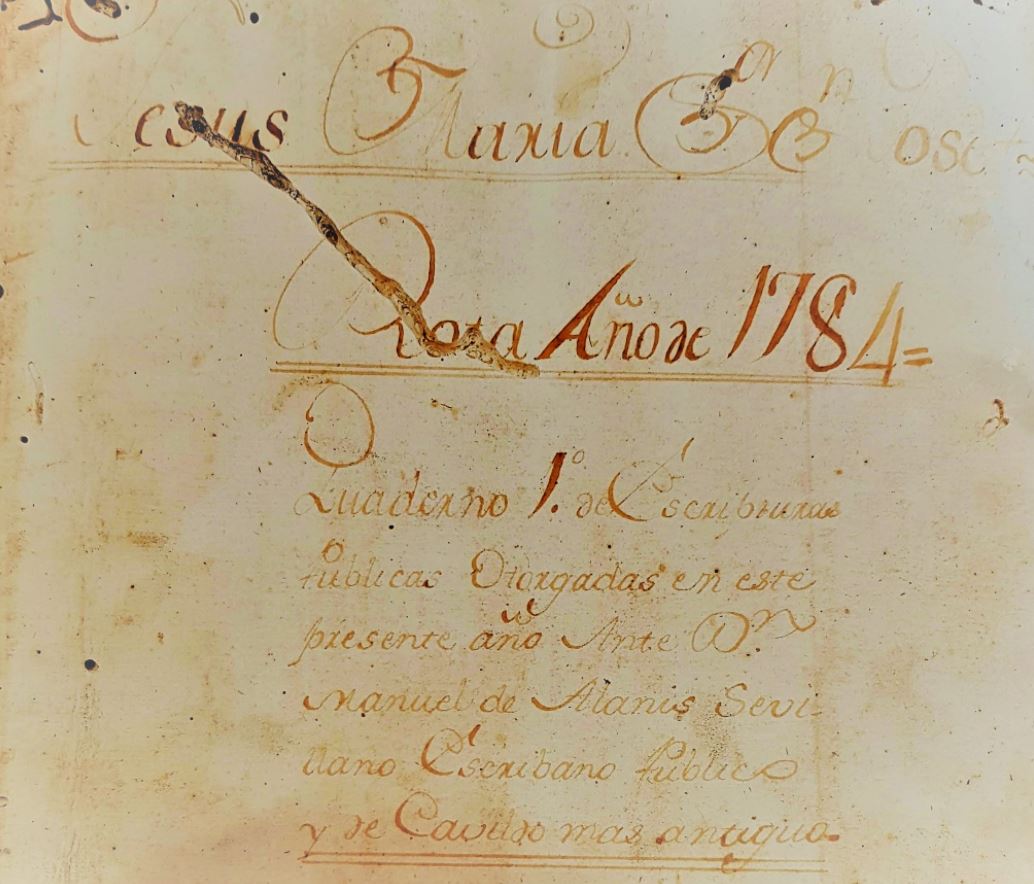 Jesus Maria Y Josef
Rota Año de 1784=
Quaderno 1.º de Escripturas
Publicas Otorgadas en este
presente año Ante Dn.
Manuel de Alanis Sevi-
llano Escribano Publico
y de Cavildo mas antiguo.